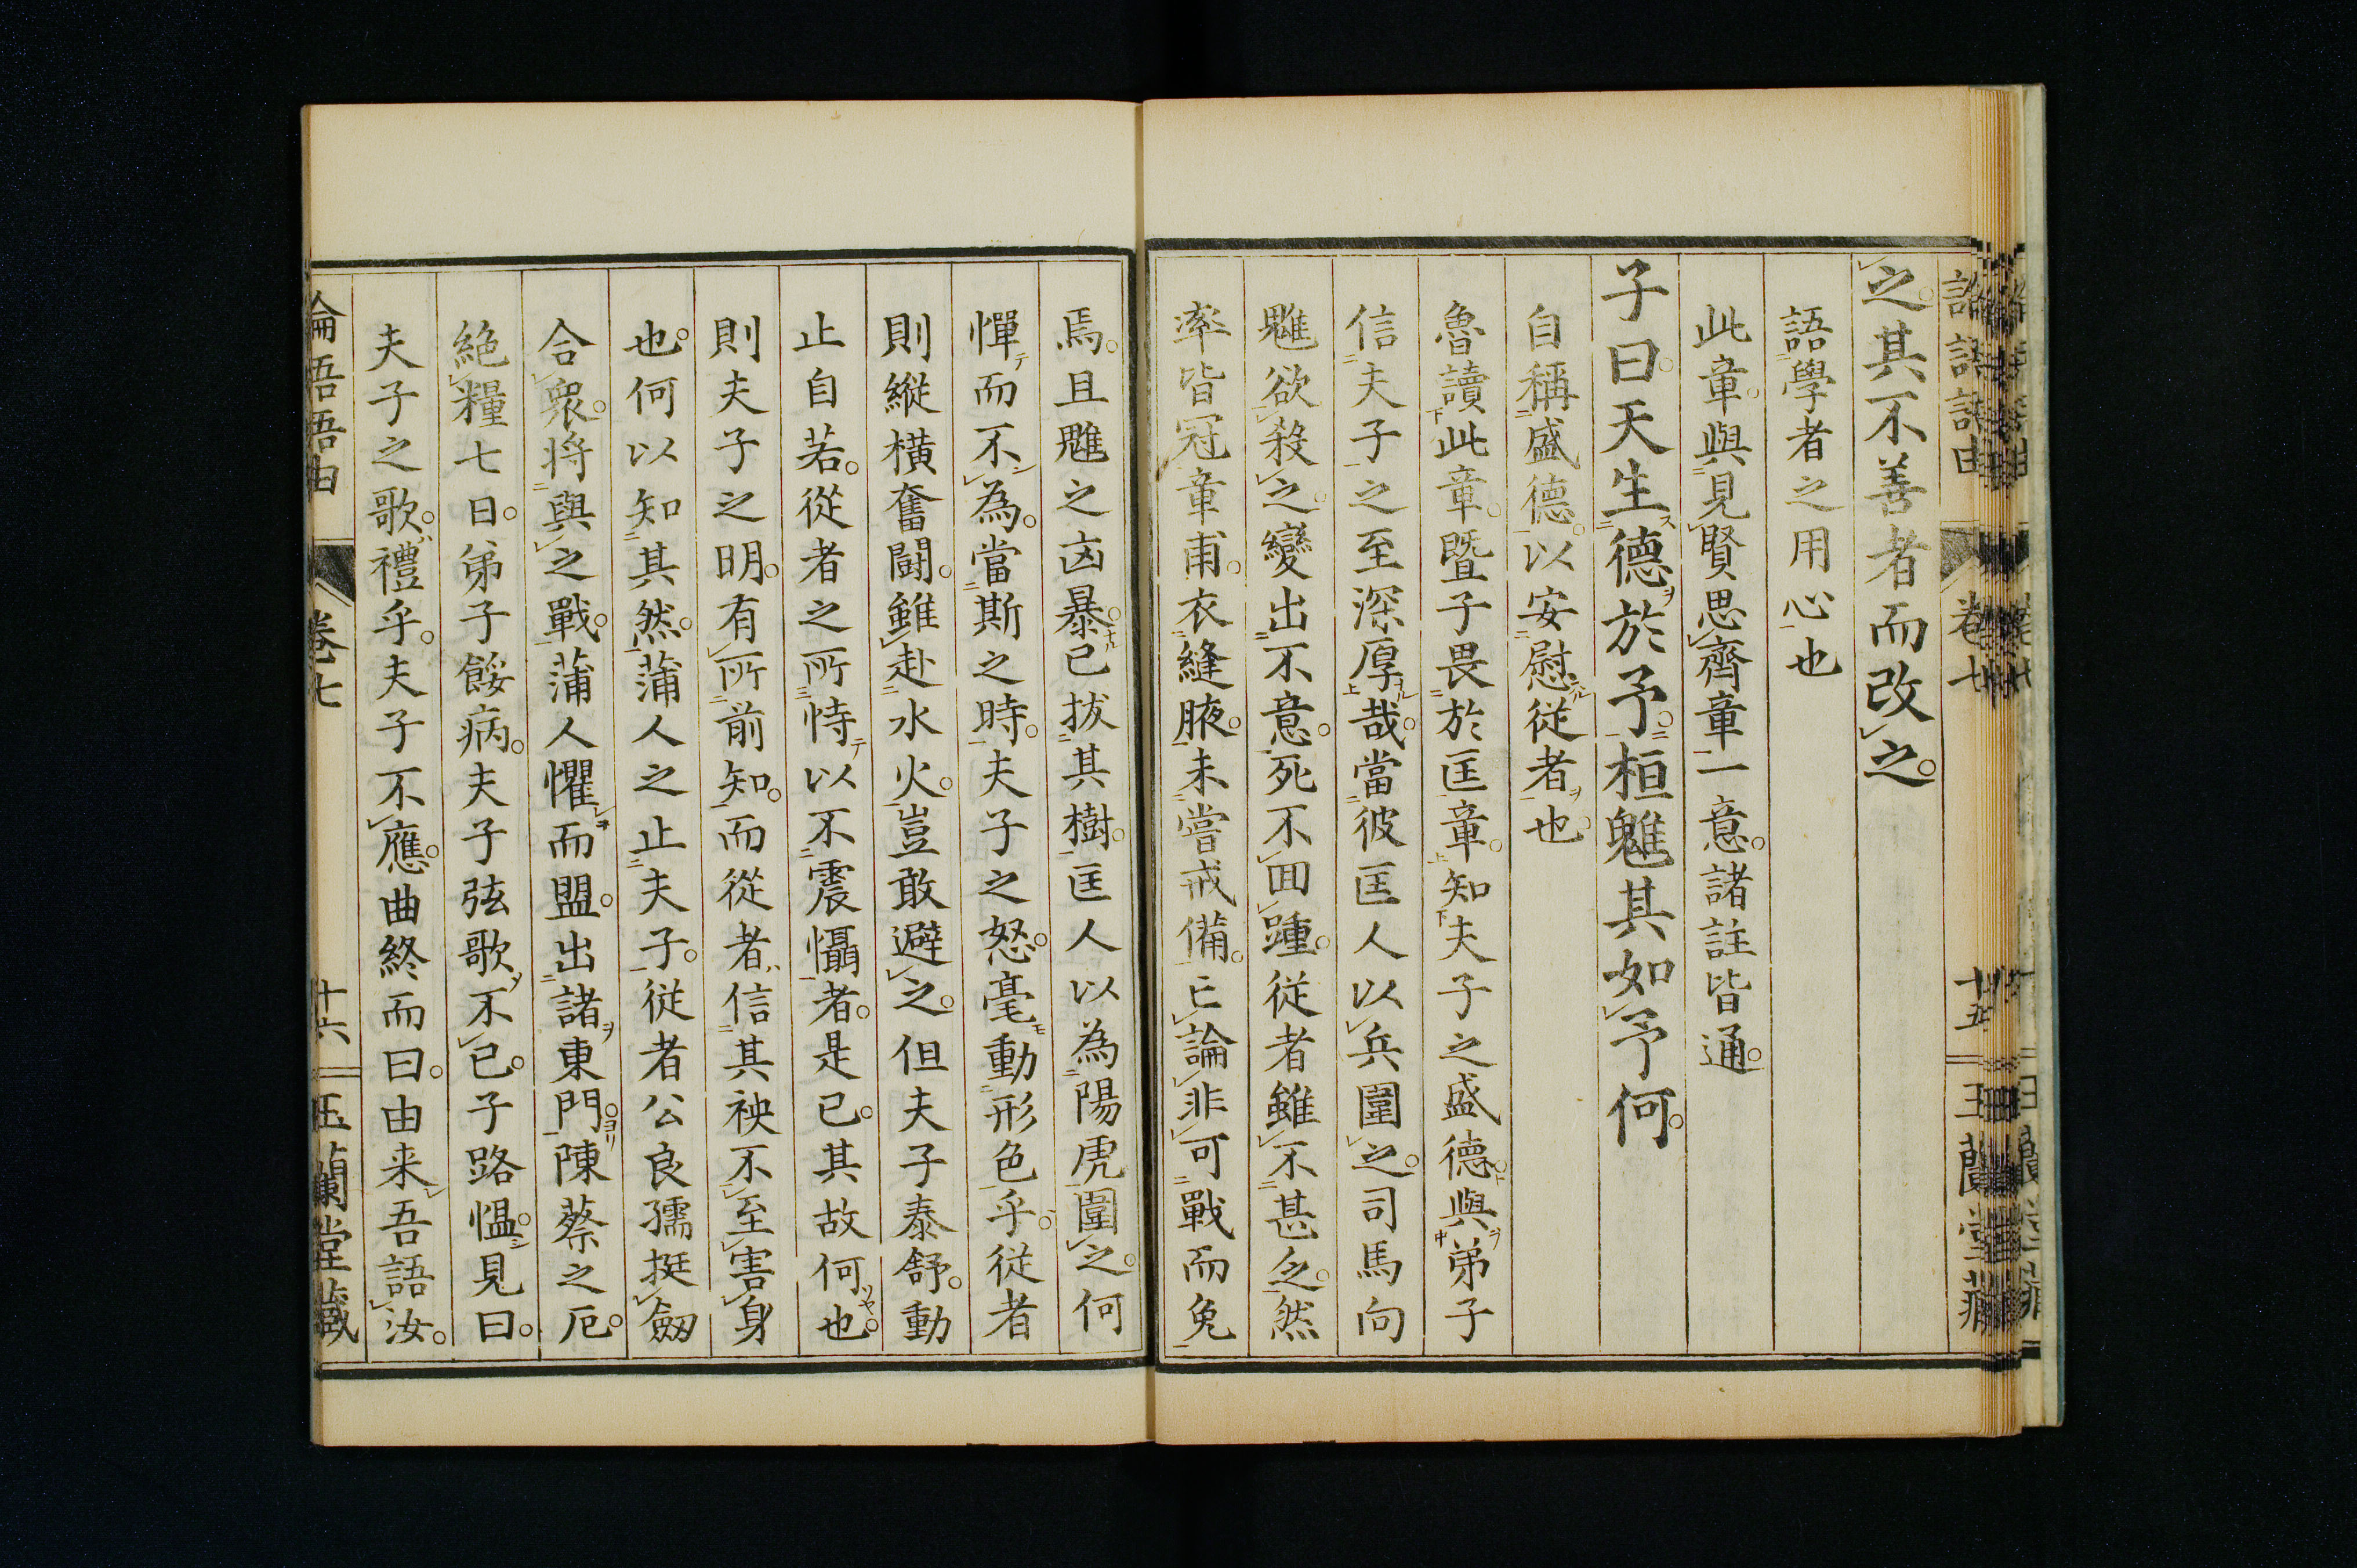 之。其不善者而改之。
語學者之用心也
此章。與見賢思齊章一意。諸註皆通。
子曰。天生德於予。桓魋其如予何。
自稱盛德。以安慰從者也。
魯讀此章。曁子畏於匡章。知夫子之盛德。與弟子
信夫子之至深厚哉。當彼匡人以兵圍之。司馬向
魋欲殺之。變出不意。死不回踵。從者雖不甚乏。然
率皆冠章甫。衣縫腋。未嘗戒備。亡論非可戰而免
焉。且魋之凶暴。已拔其樹。匡人以為陽虎圍之。何
憚而不為。當斯之時。夫子之怒。毫動形色乎。從者
則縱橫奮鬪。雖赴水火。豈敢避之。但夫子泰舒。動
止自若。從者之所恃以不震懾者。是已。其故何也。
則夫子之明。有所前知。而從者信其秧不至害身
也。何以知其然。蒲人之止夫子。從者公良孺挺劔
合衆。將與之戰。蒲人懼而盟。出諸東門。陳蔡之厄。
絶糧七日。弟子餒病。夫子弦歌不已。子路慍見曰。
夫子之歌。禮乎。夫子不應。曲終而曰。由来吾語汝。
卷七
十六
玉蘭堂藏